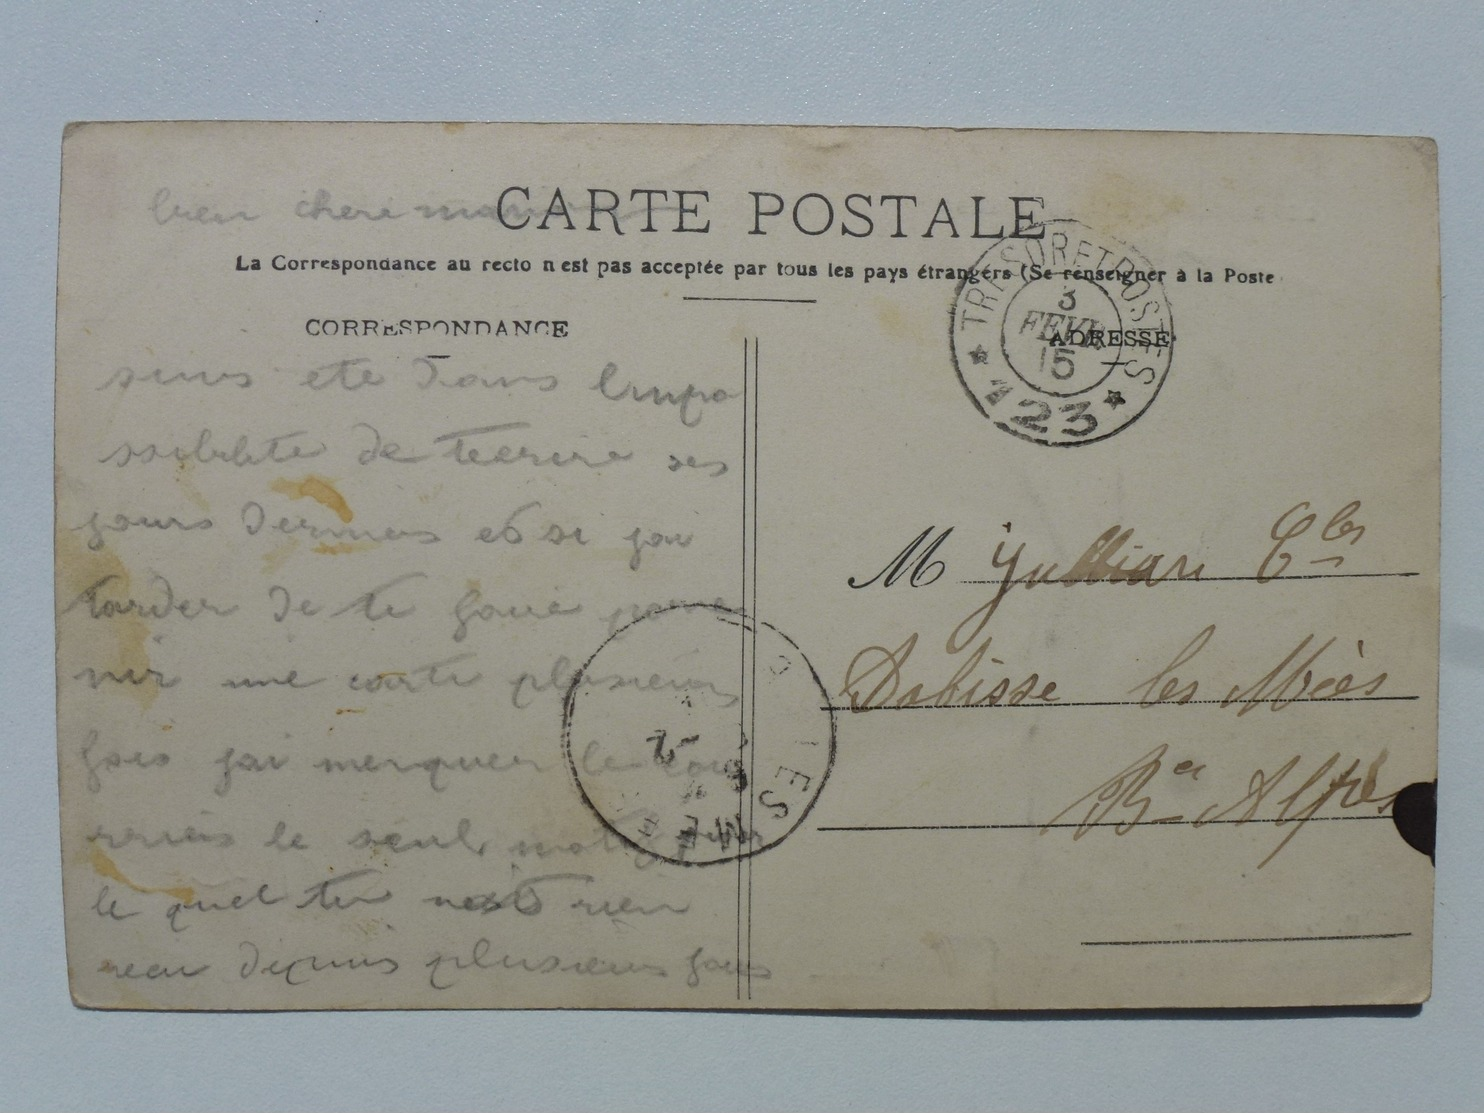 bien chere maman
CARTE POSTALE
La Correspondance au recto n'est pas acceptée par tous les pays étrangers (Se renseigner à la Poste
CORRESPONDANCE
ADRESSE
TRESOR ET POSTES
3
FEVR
15
★ 123 ★
suis ete dans l'inpo
ssiblité de t'ecrire ses
jours derniers et si jai
tarder de te faire parve
nir une carte plusieurs
fois jai
le seul motif pour
le quel tu n'est rien
recu depuis plusieurs jours
M Jullian Cles
Dabisse les Mées
Bes Alpes